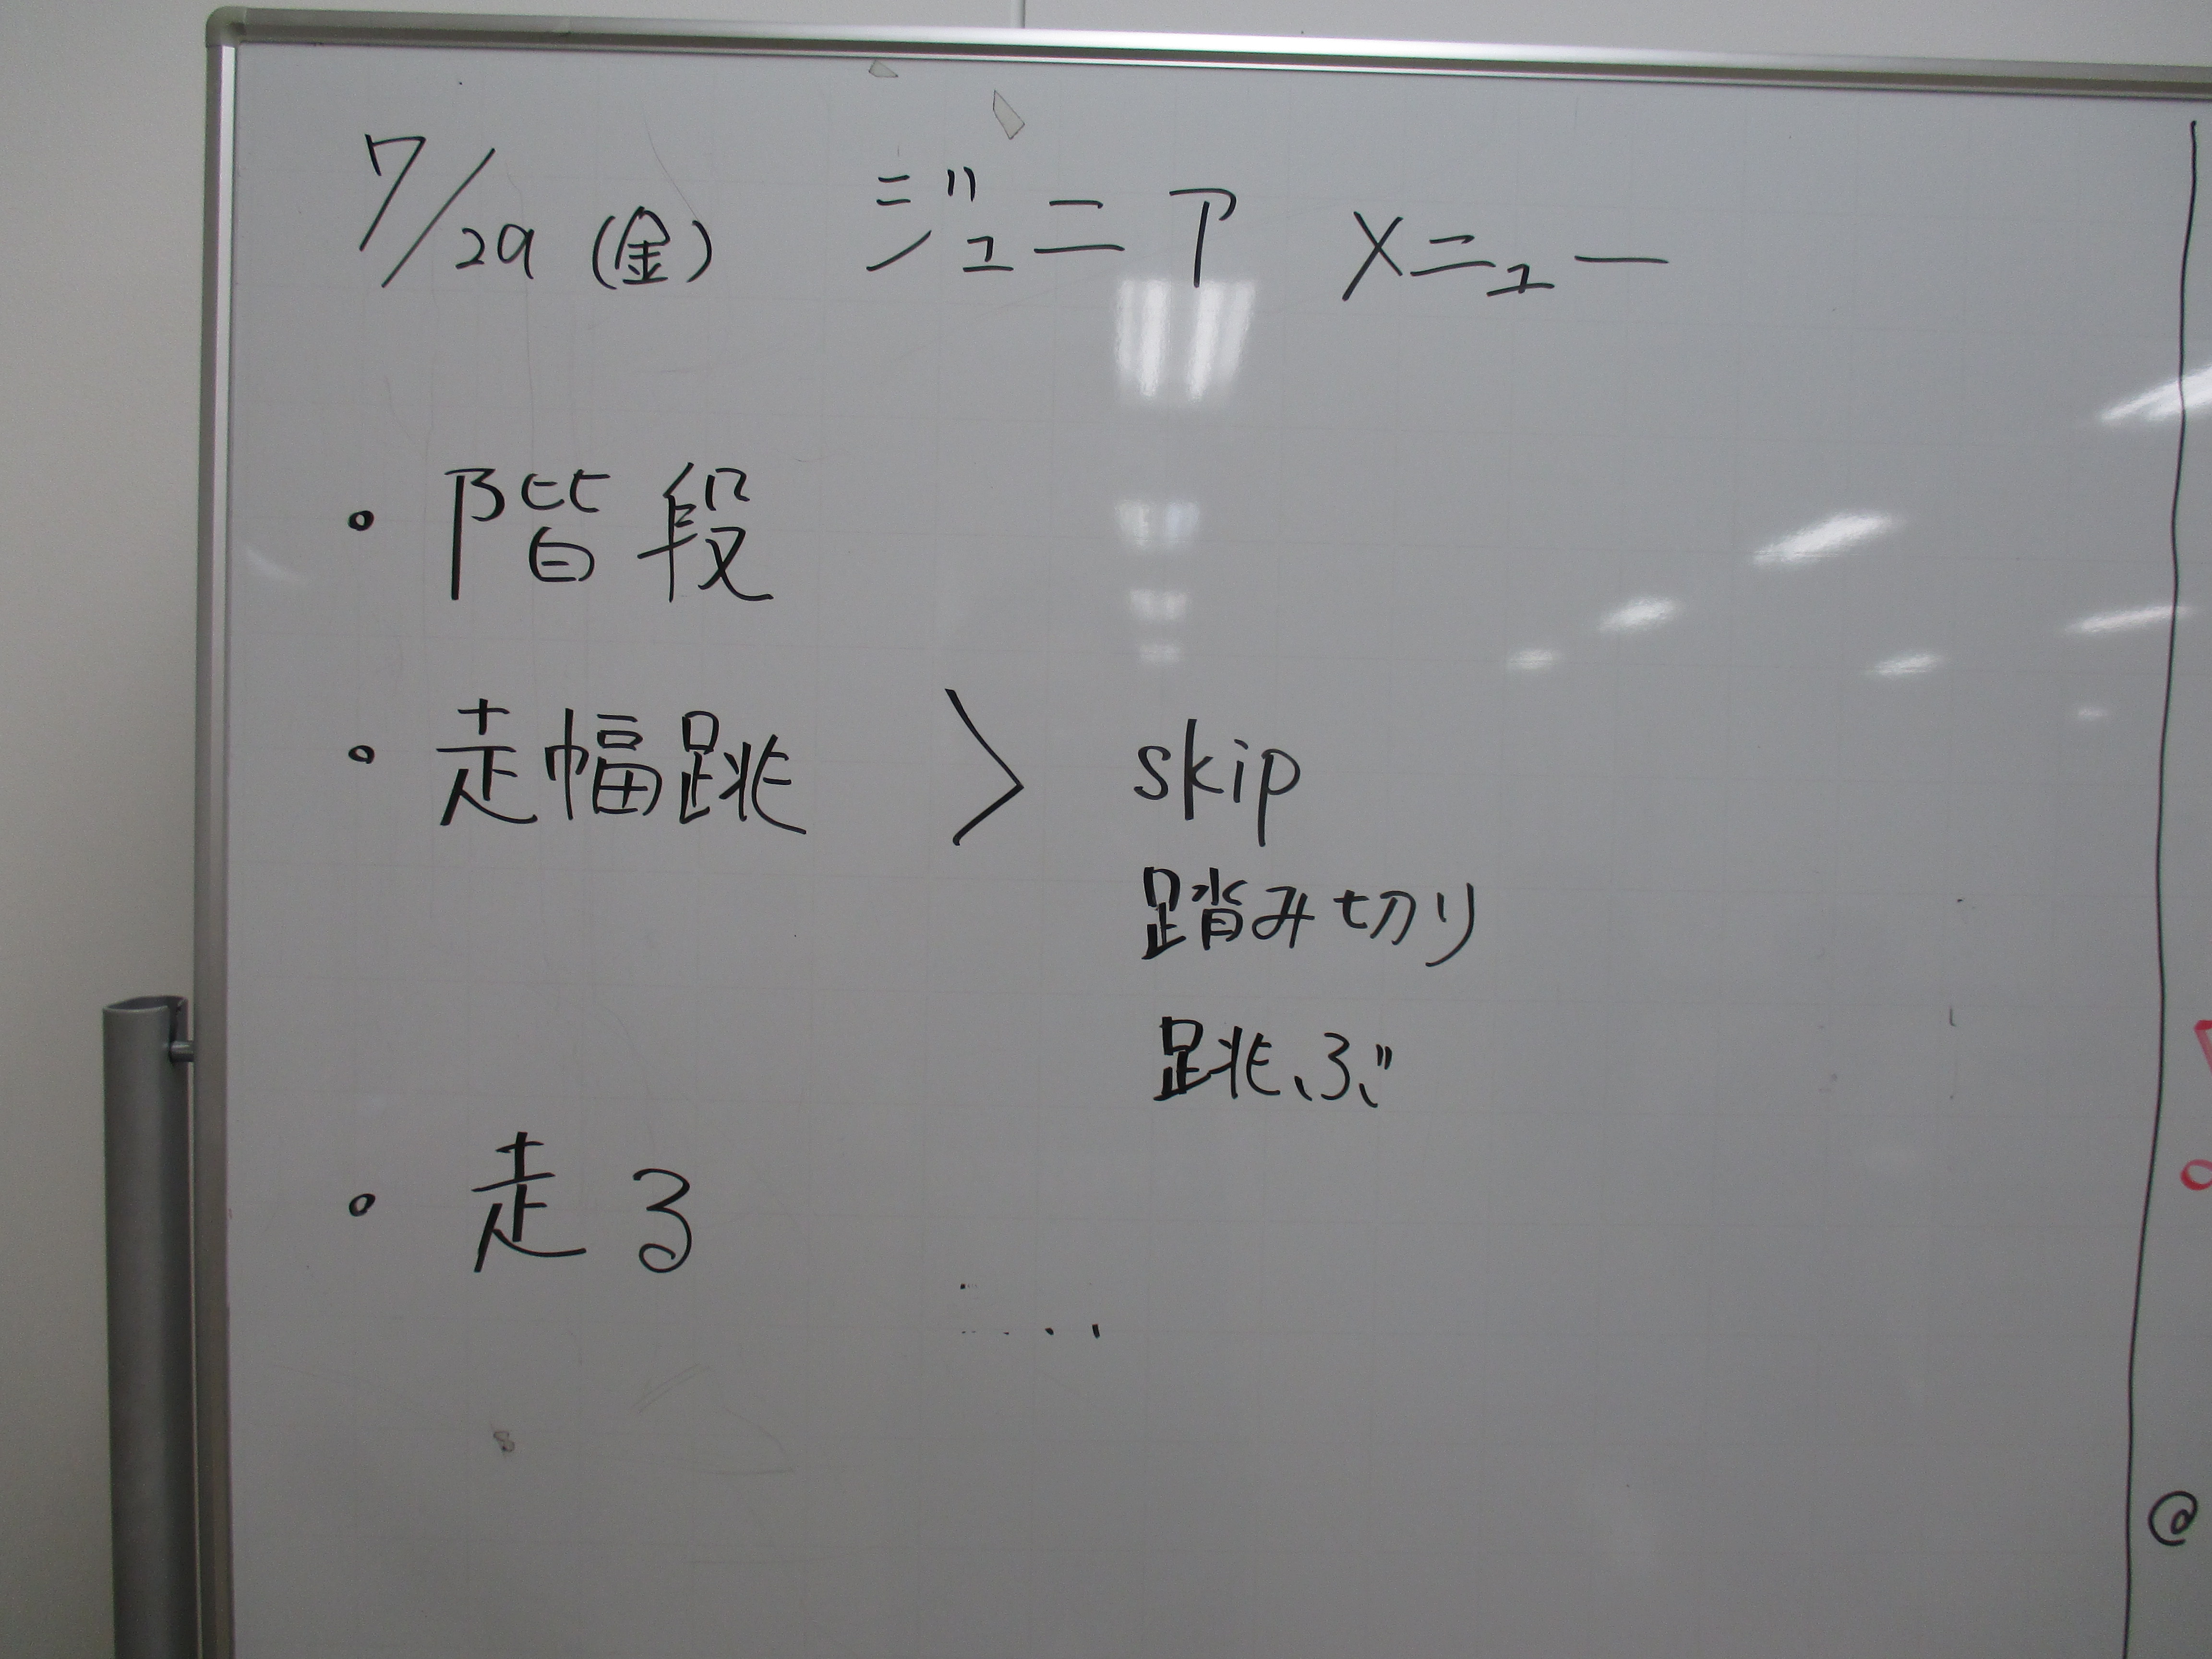 7/29 (金) ジュニア メニュー
・階段
・走幅跳 > skip
踏み切り
跳ぶ
・走る
@